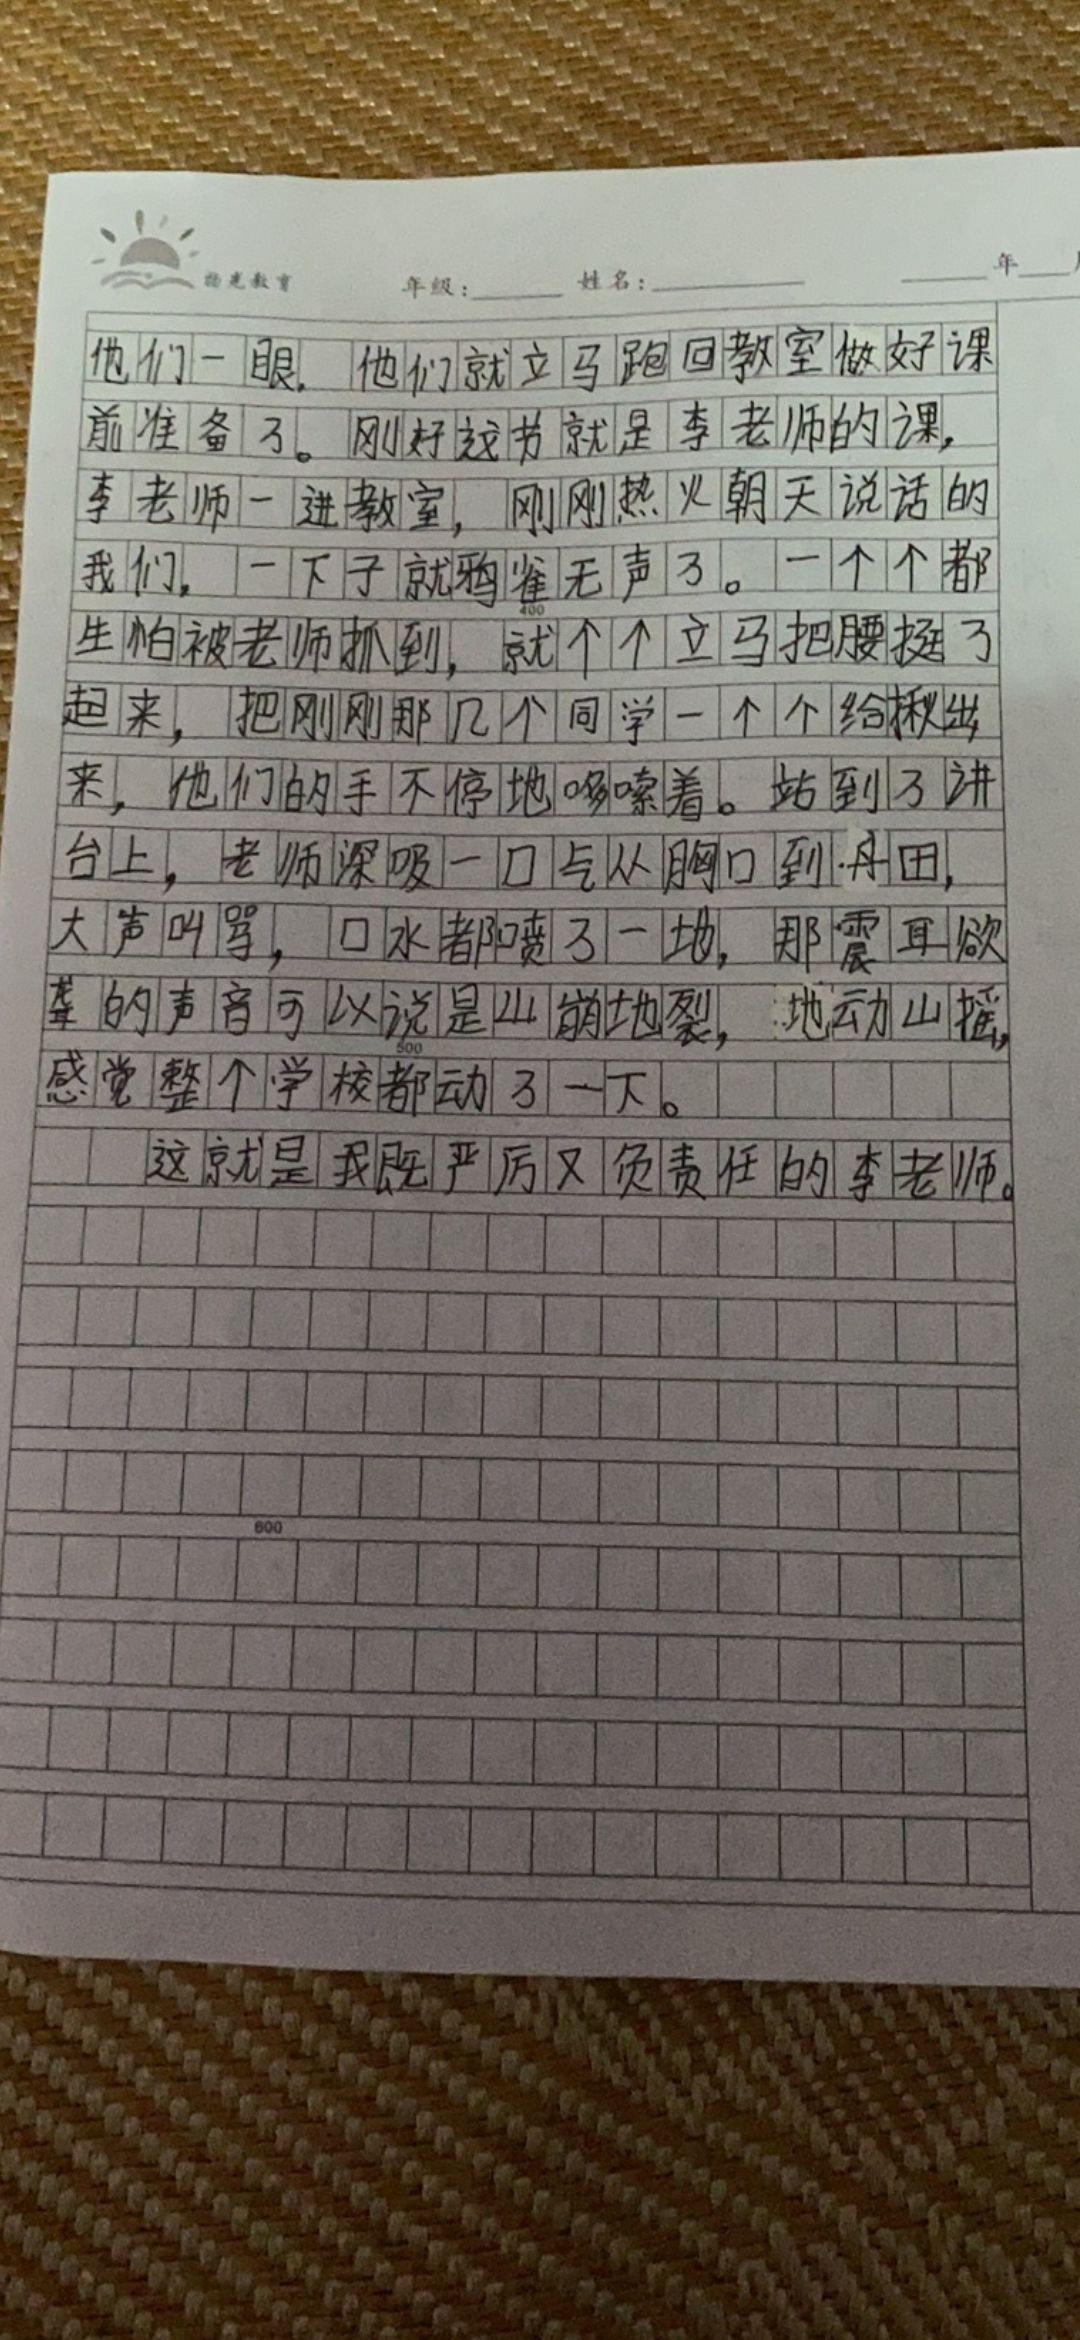 扬光教育 年级: 姓名: 年
他们一眼，他们就立马跑回教室做好课
前准备了。刚好这节就是李老师的课，
李老师一进教室，刚刚热火朝天说话的
我们，一下子就鸦雀无声了。一个个都
400
生怕被老师抓到，就个个立马把腰挺了
起来，把刚刚那几个同学一个个给揪出
来，他们的手不停地哆嗦着。站到了讲
台上，老师深吸一口气从胸口到丹田，
大声叫骂，口水都喷了一地，那震耳欲
聋的声音可以说是山崩地裂，地动山摇，
500
感觉整个学校都动了一下。
这就是我既严厉又负责任的李老师。
600